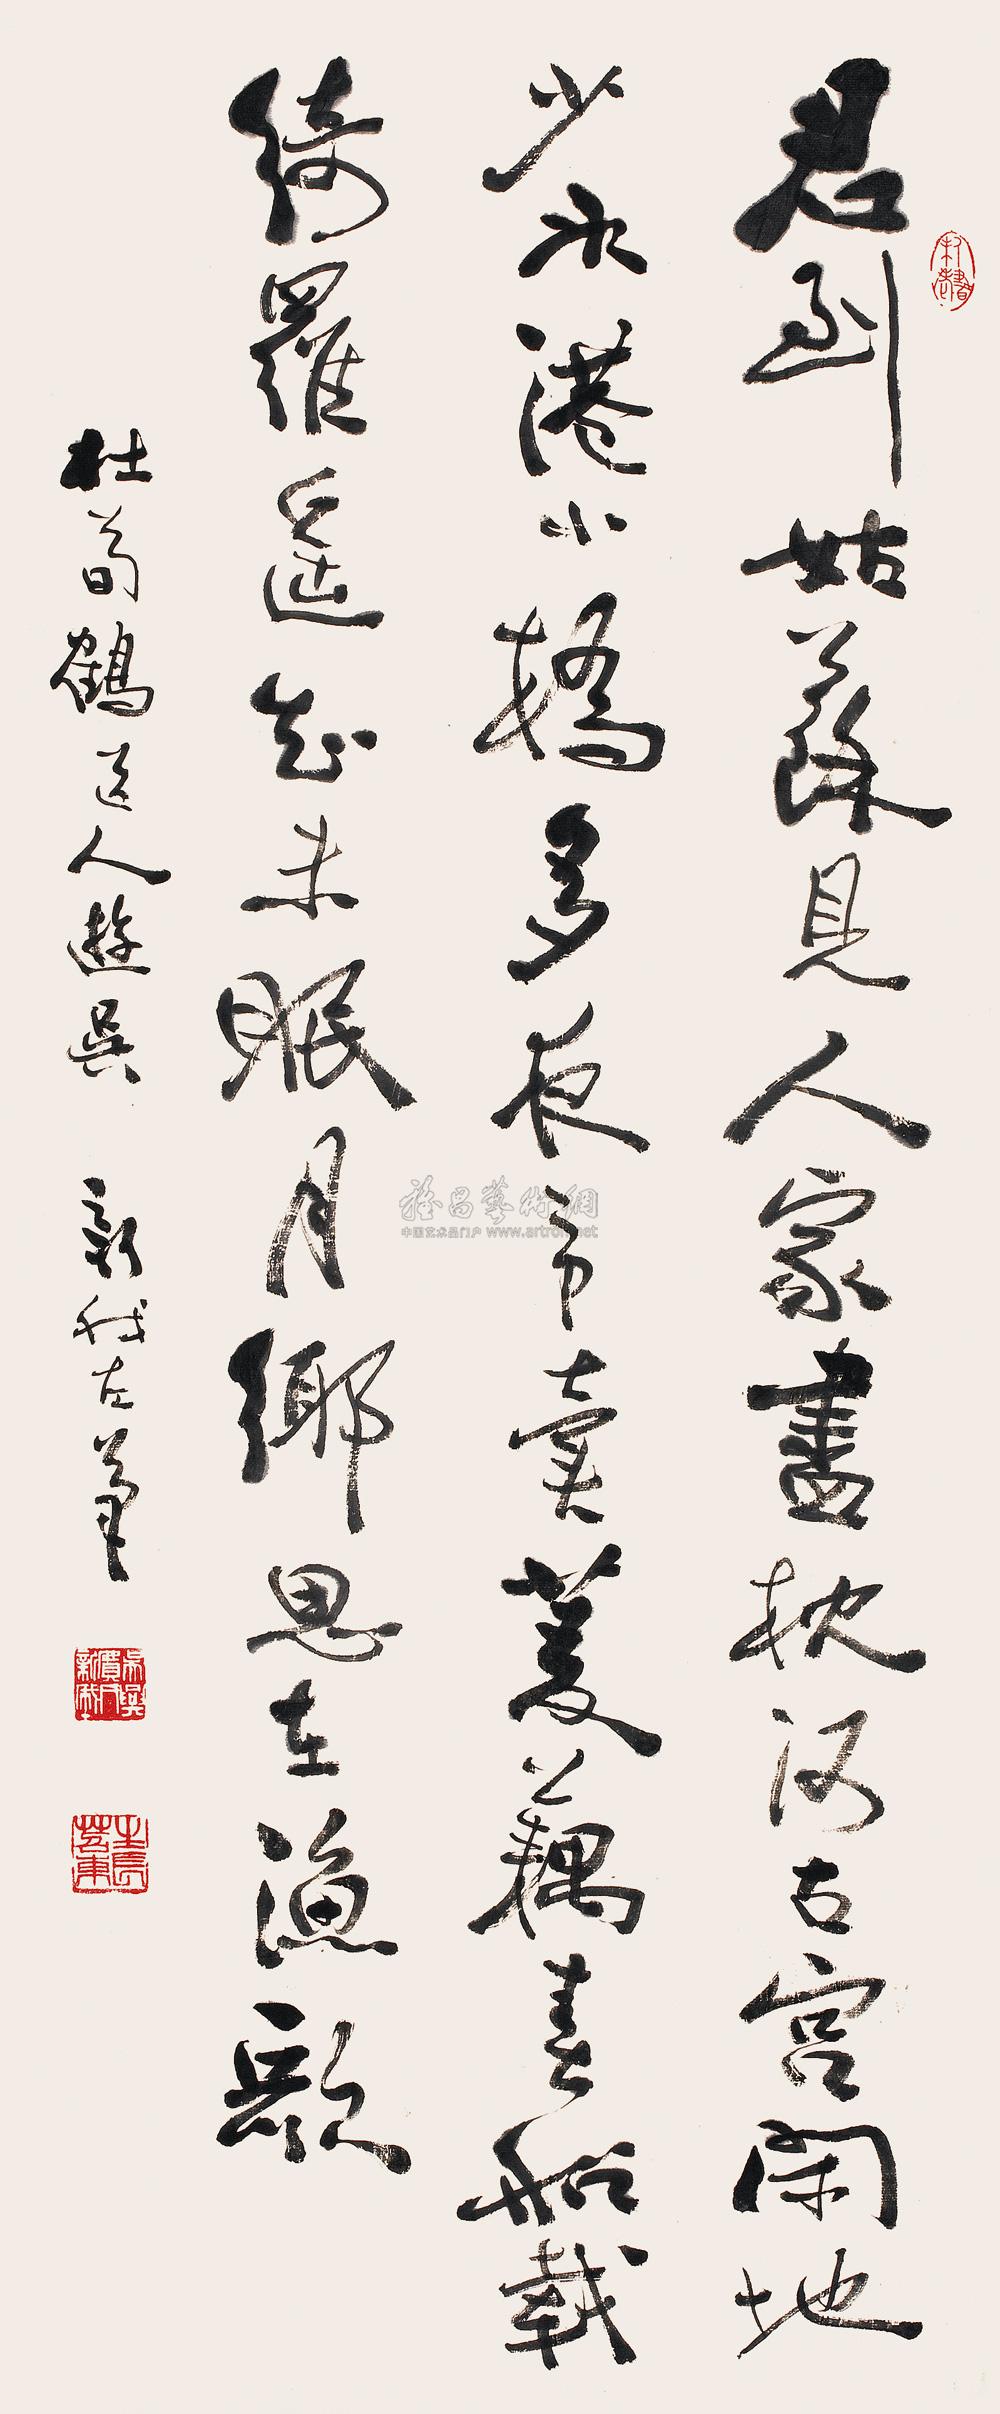 君到姑蘇見人家盡枕河古宮閑地
少水港小橋多夜市賣菱藕春船載
綺羅遙知未眠月鄉思在漁歌
杜荀鶴送人遊吳 新我左筆
雅昌藝術網
中国艺术品门户 www.artron.net